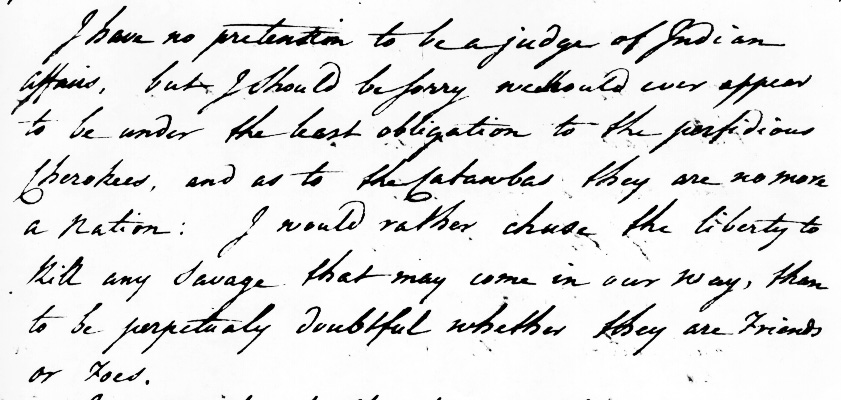 I have no pretention to be a judge of Indian
affairs, but I should be sorry we should ever appear
to be under the least obligation to the perfidious
Cherokees, and as to the Catawbas they are no more
a Nation: I would rather chuse the liberty to
kill any Savage that may come in our way, than
to be perpetualy doubtful whether they are Friends
or Foes.